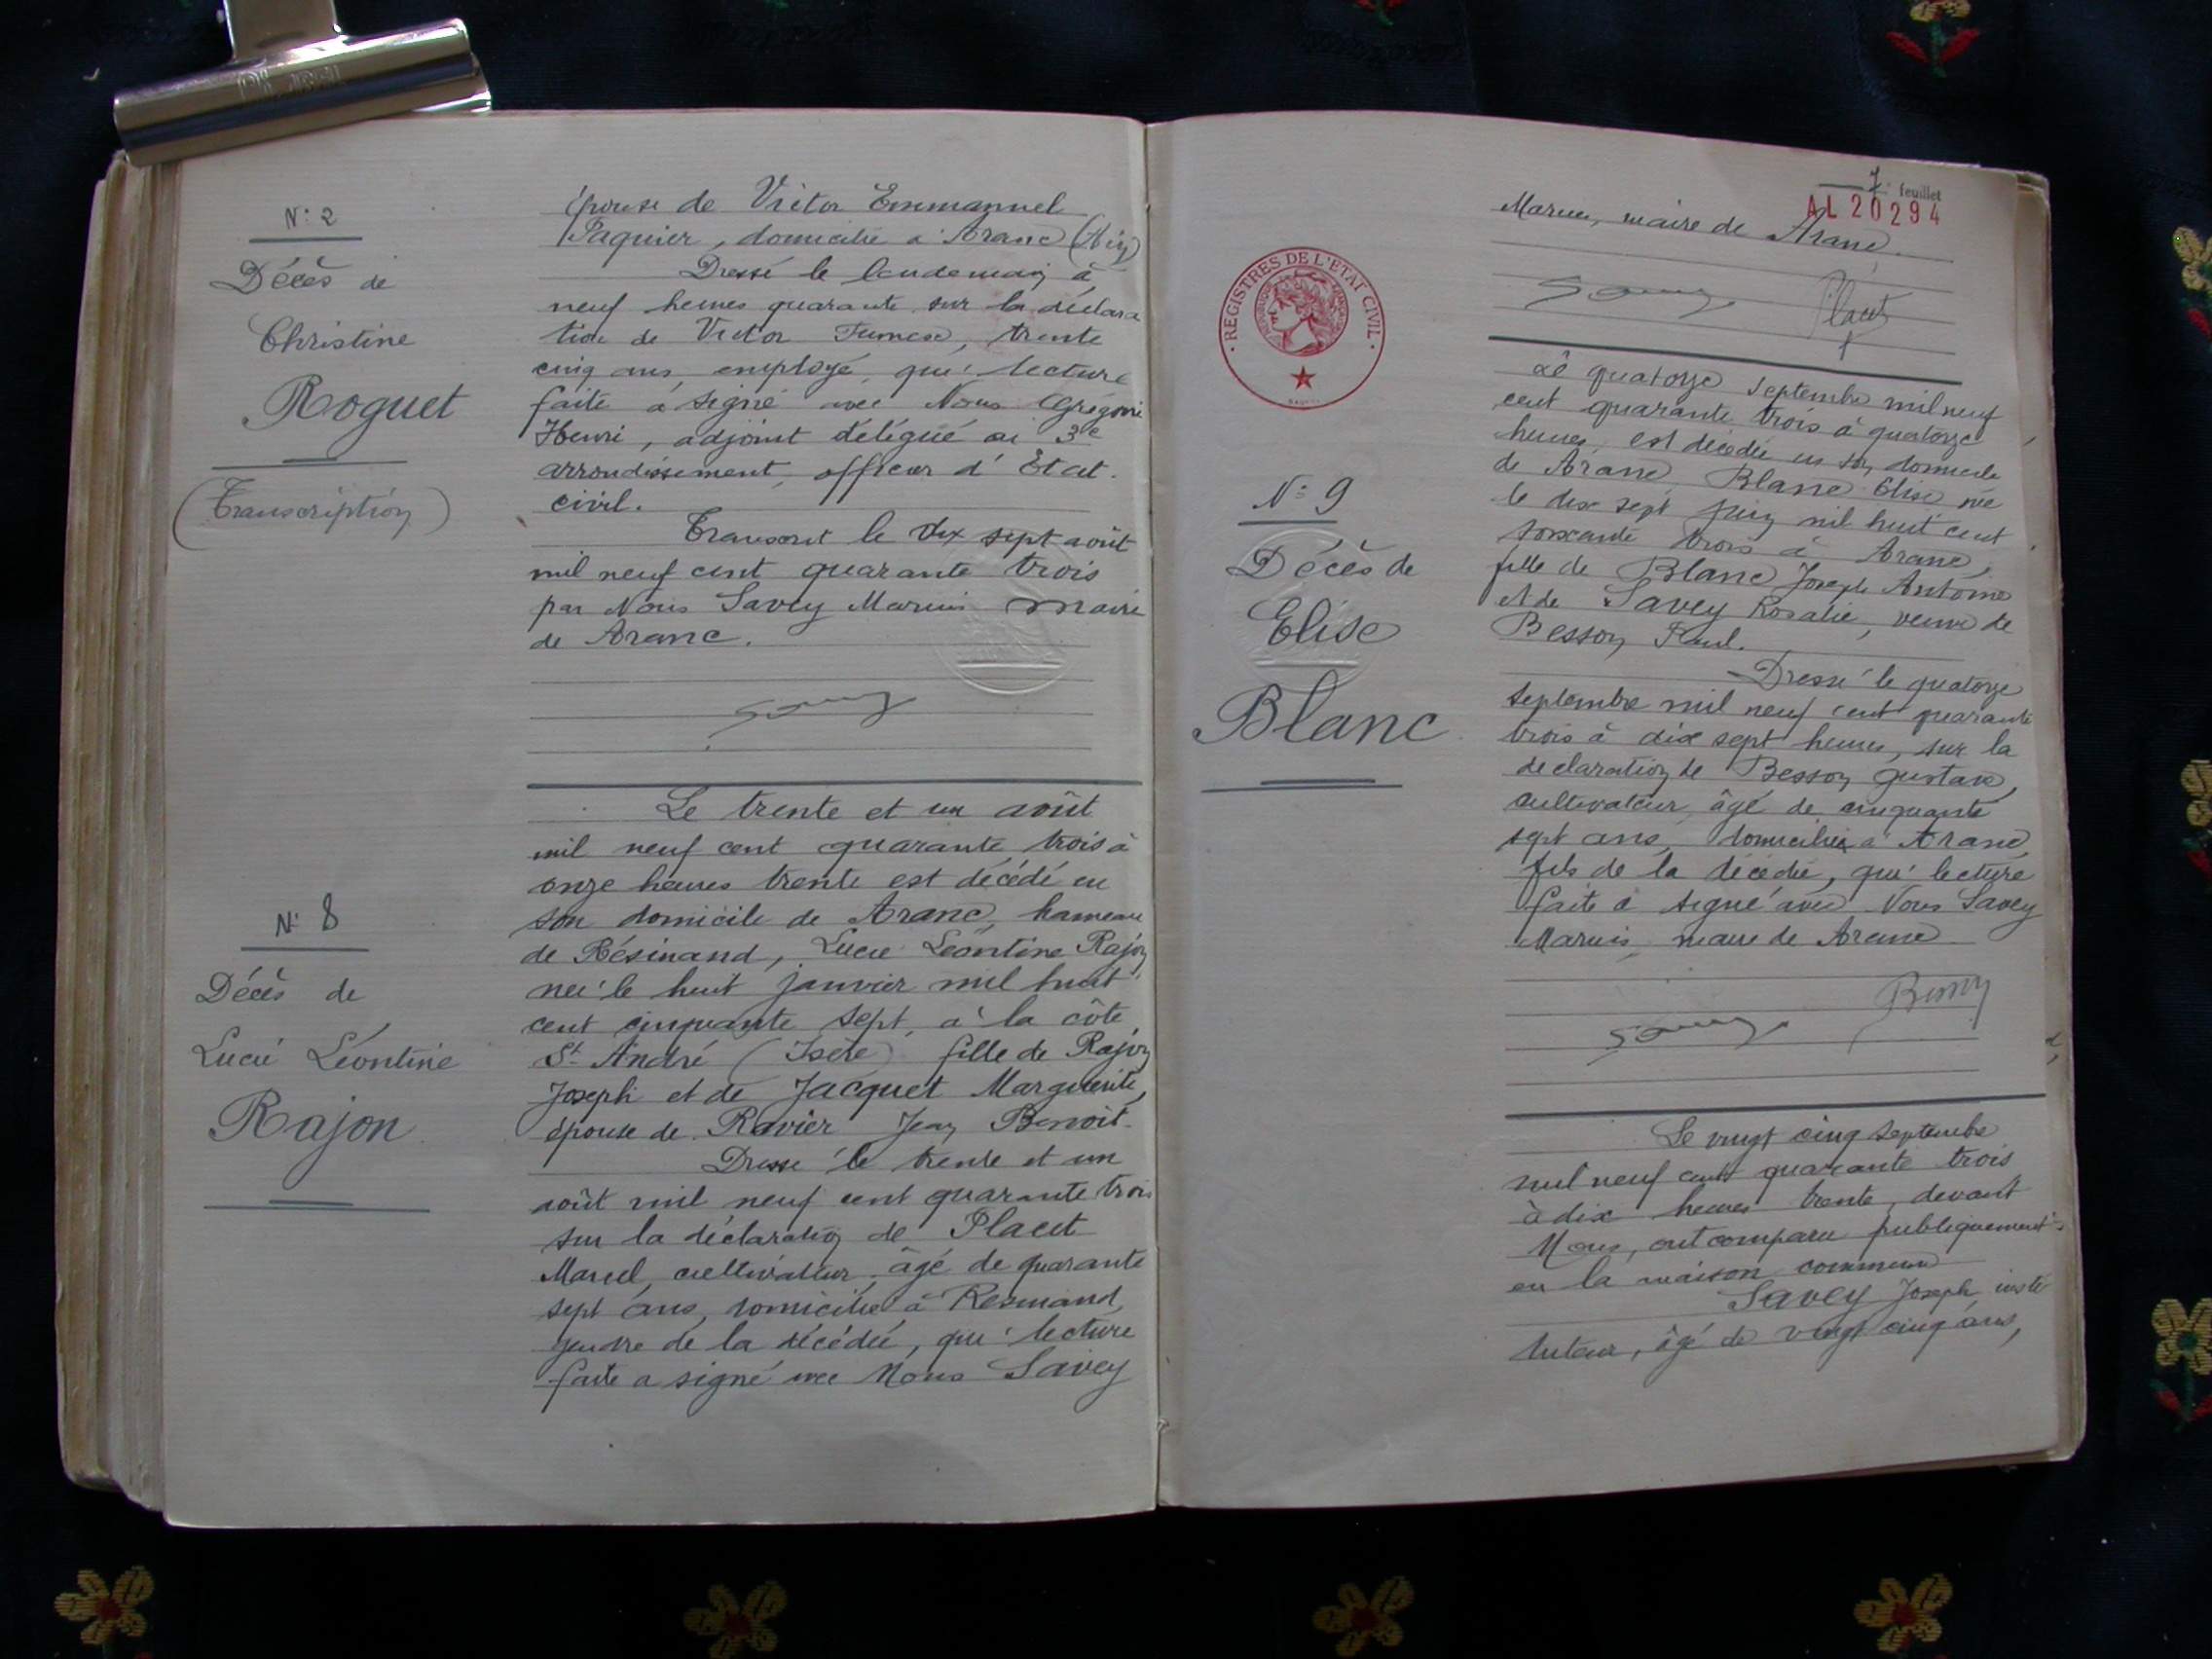 N° 2
Décès de
Christine
Roguet
(Transcription)
épouse de Victor Emmanuel
Paquier, domicilié à Aranc (Ain)
Dressé le lendemain à
neuf heures quarante sur la déclara
tion de Victor trente
cinq ans, employé, qui lecture
faite a signé avec Nous Grégoire
Henri, adjoint délégué au 3e
arrondissement, officier d'Etat
civil.
Transcrit le dix sept août
mil neuf cent quarante trois
par Nous Savey Marius maire
de Aranc.
N° 8
Décès de
Lucie Léontine
Rajon
Le trente et un août
mil neuf cent quarante trois à
onze heures trente est décédé en
son domicile de Aranc, hameau
de Résinand, Lucie Léontine Rajon
née le huit janvier mil huit
cent cinquante sept, à la côte
St André (Isère) fille de Rajon
Joseph et de Jacquet Marguerite,
épouse de Ravier Jean Benoît.
Dressé le trente et un
août mil neuf cent quarante trois
sur la déclaration de Placet
Marcel, cultivateur, âgé de quarante
sept ans, domicilié à Résinand,
gendre de la décédée, qui lecture
faite a signé avec Nous Savey
7e feuillet
AL 20294
Marius, maire de Aranc.
Placet
REGISTRES DE L'ETAT CIVIL
N° 9
Décès de
Elise
Blanc
Le quatorze septembre mil neuf
cent quarante trois à quatorze
heures, est décédée en son domicile
de Aranc, Blanc Elise née
le dix sept juin mil huit cent
soixante trois à Aranc,
fille de Blanc Joseph Antoine
et de Savey Rosalie, veuve de
Besson Paul.
Dressé le quatorze
septembre mil neuf cent quarante
trois à dix sept heures, sur la
déclaration de Besson Gustave,
cultivateur, âgé de cinquante
sept ans, domicilié à Aranc,
fils de la décédée, qui lecture
faite a signé avec Nous Savey
Marius, maire de Aranc
Besson
Le vingt cinq septembre
mil neuf cent quarante trois
à dix heures trente, devant
Nous, ont comparu publiquement
en la maison commune
Savey Joseph, insti
tuteur, âgé de vingt cinq ans,